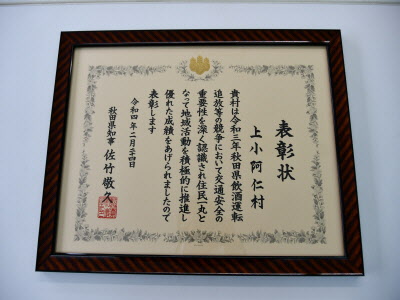 表彰状
上小阿仁村
貴村は令和三年秋田県飲酒運転
追放等の競争において交通安全の
重要性を深く認識され住民一丸と
なって地域活動を積極的に推進し
優れた成績をあげられましたので
表彰します
令和四年二月二十四日
秋田県知事 佐竹敬久